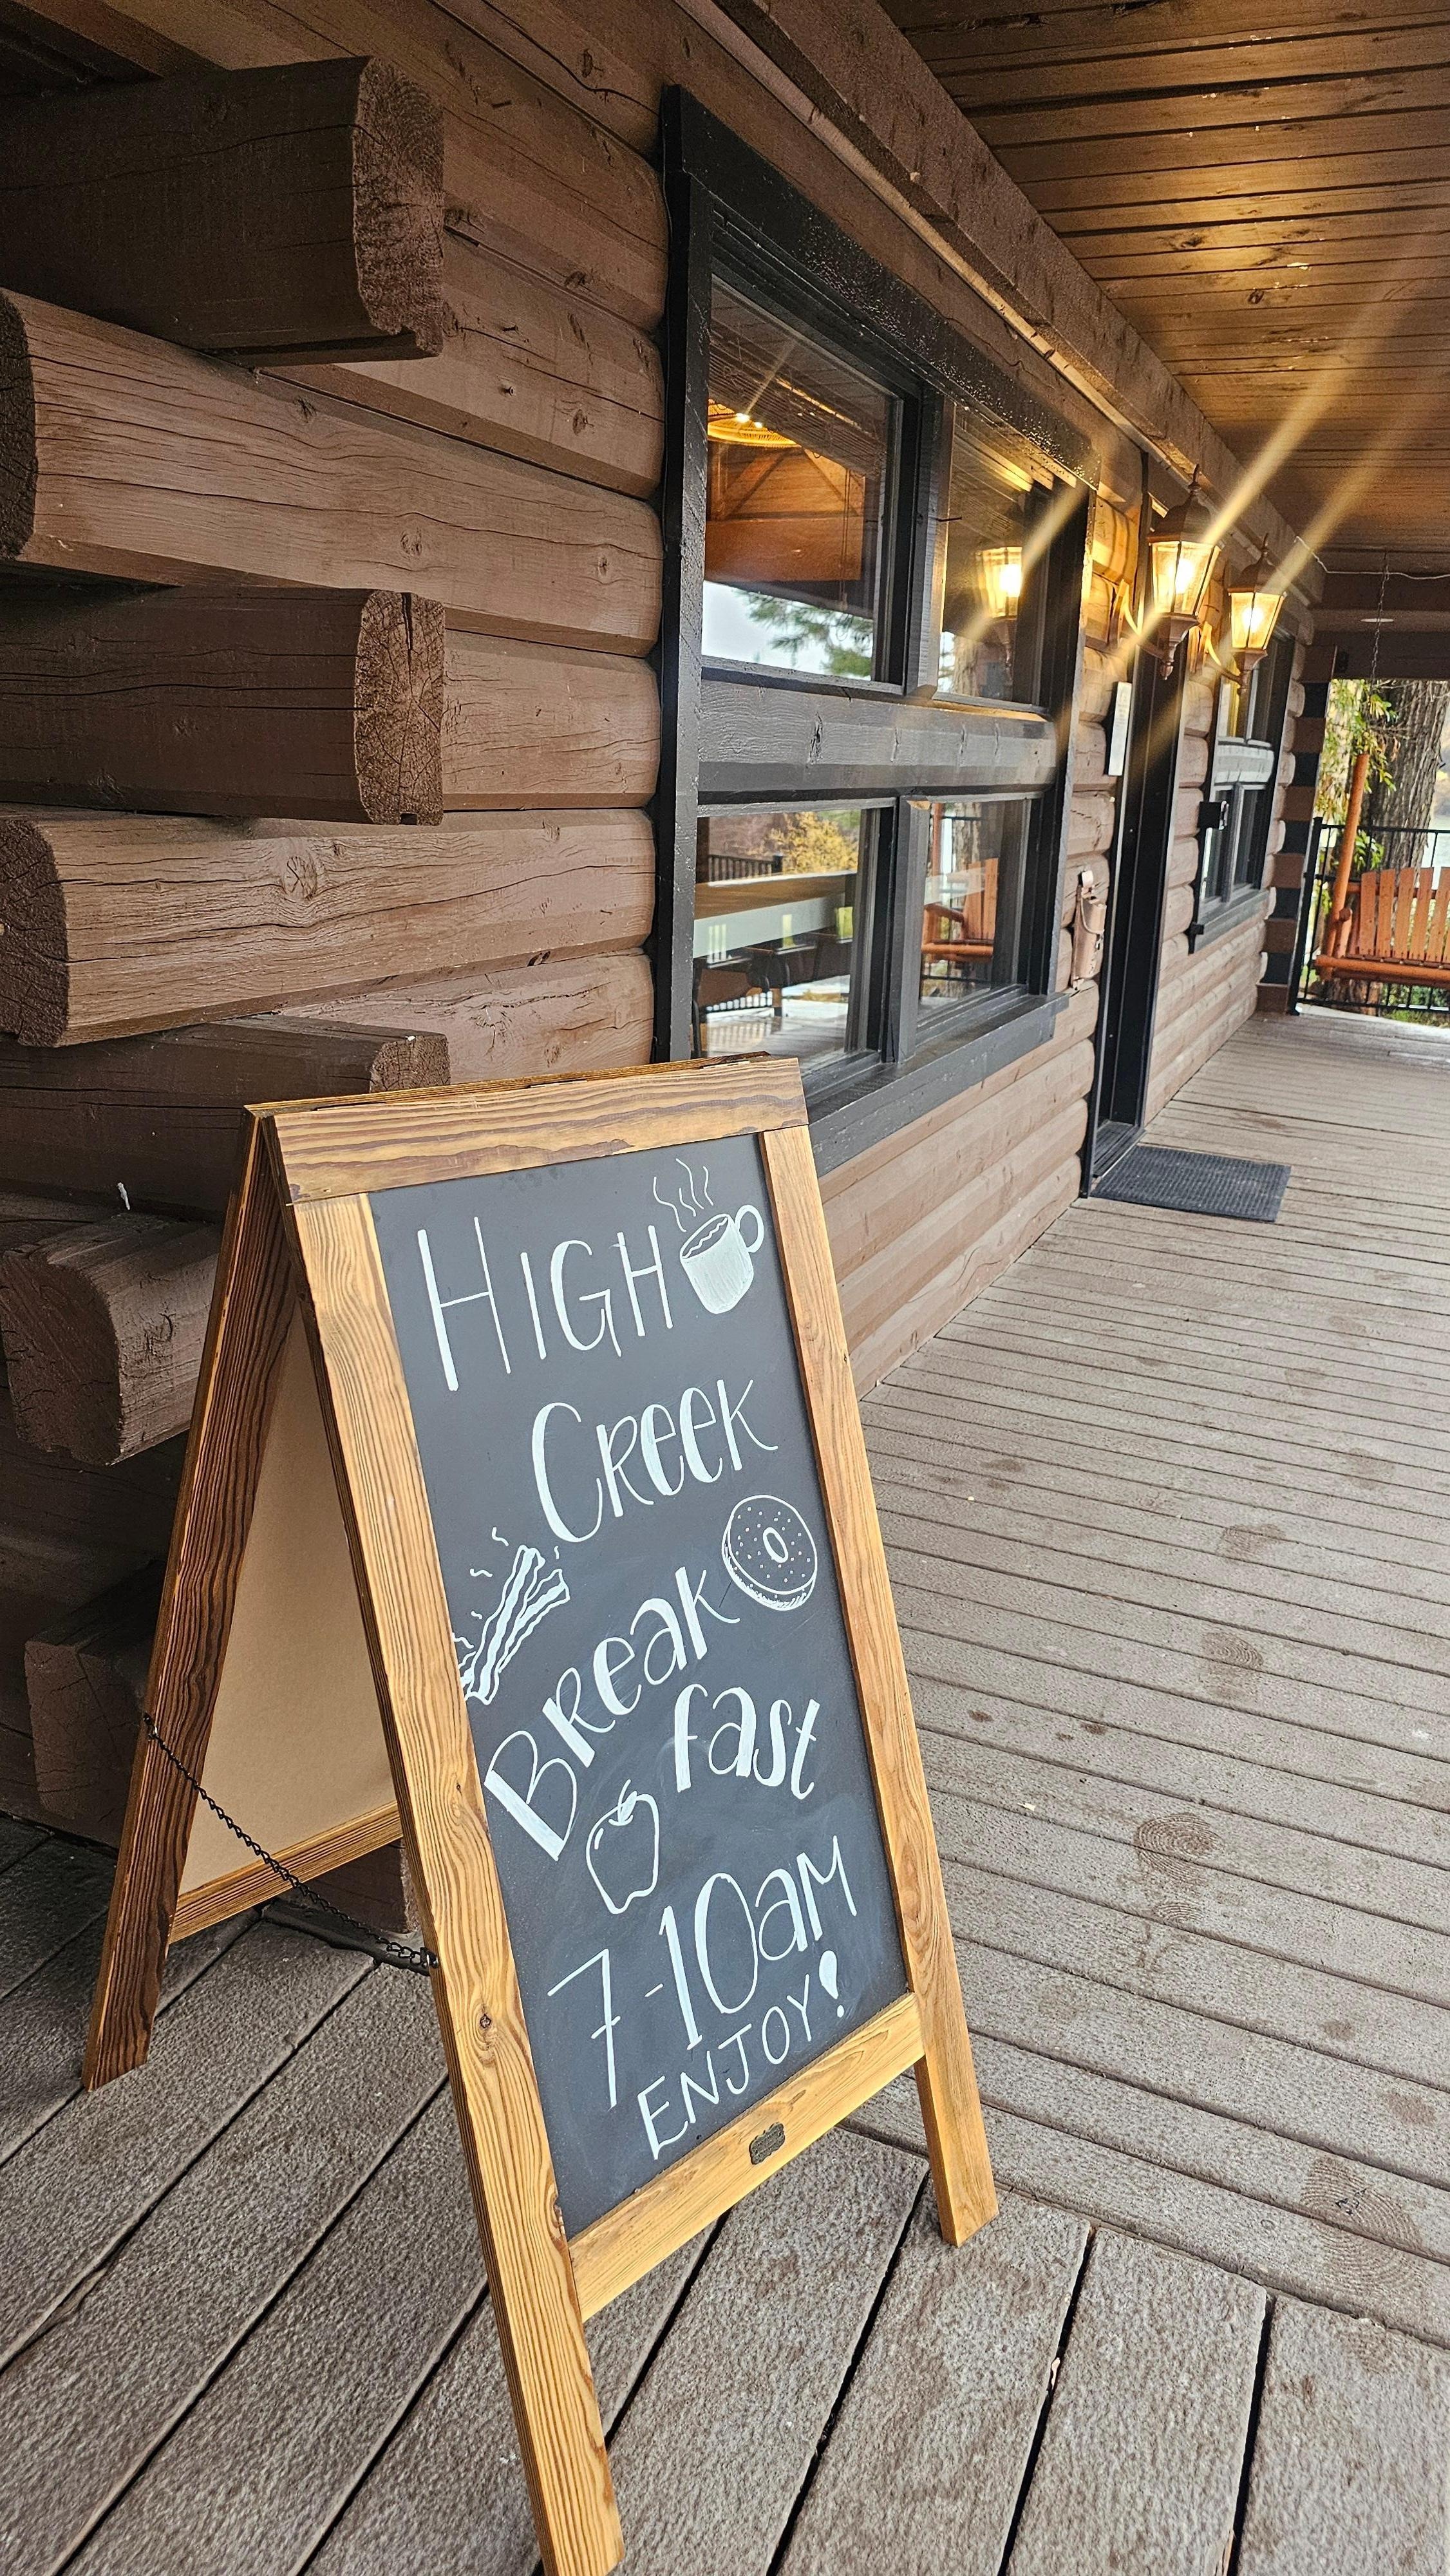 HIGH
CREEK
BREAK
fast
7-10am
ENJOY!